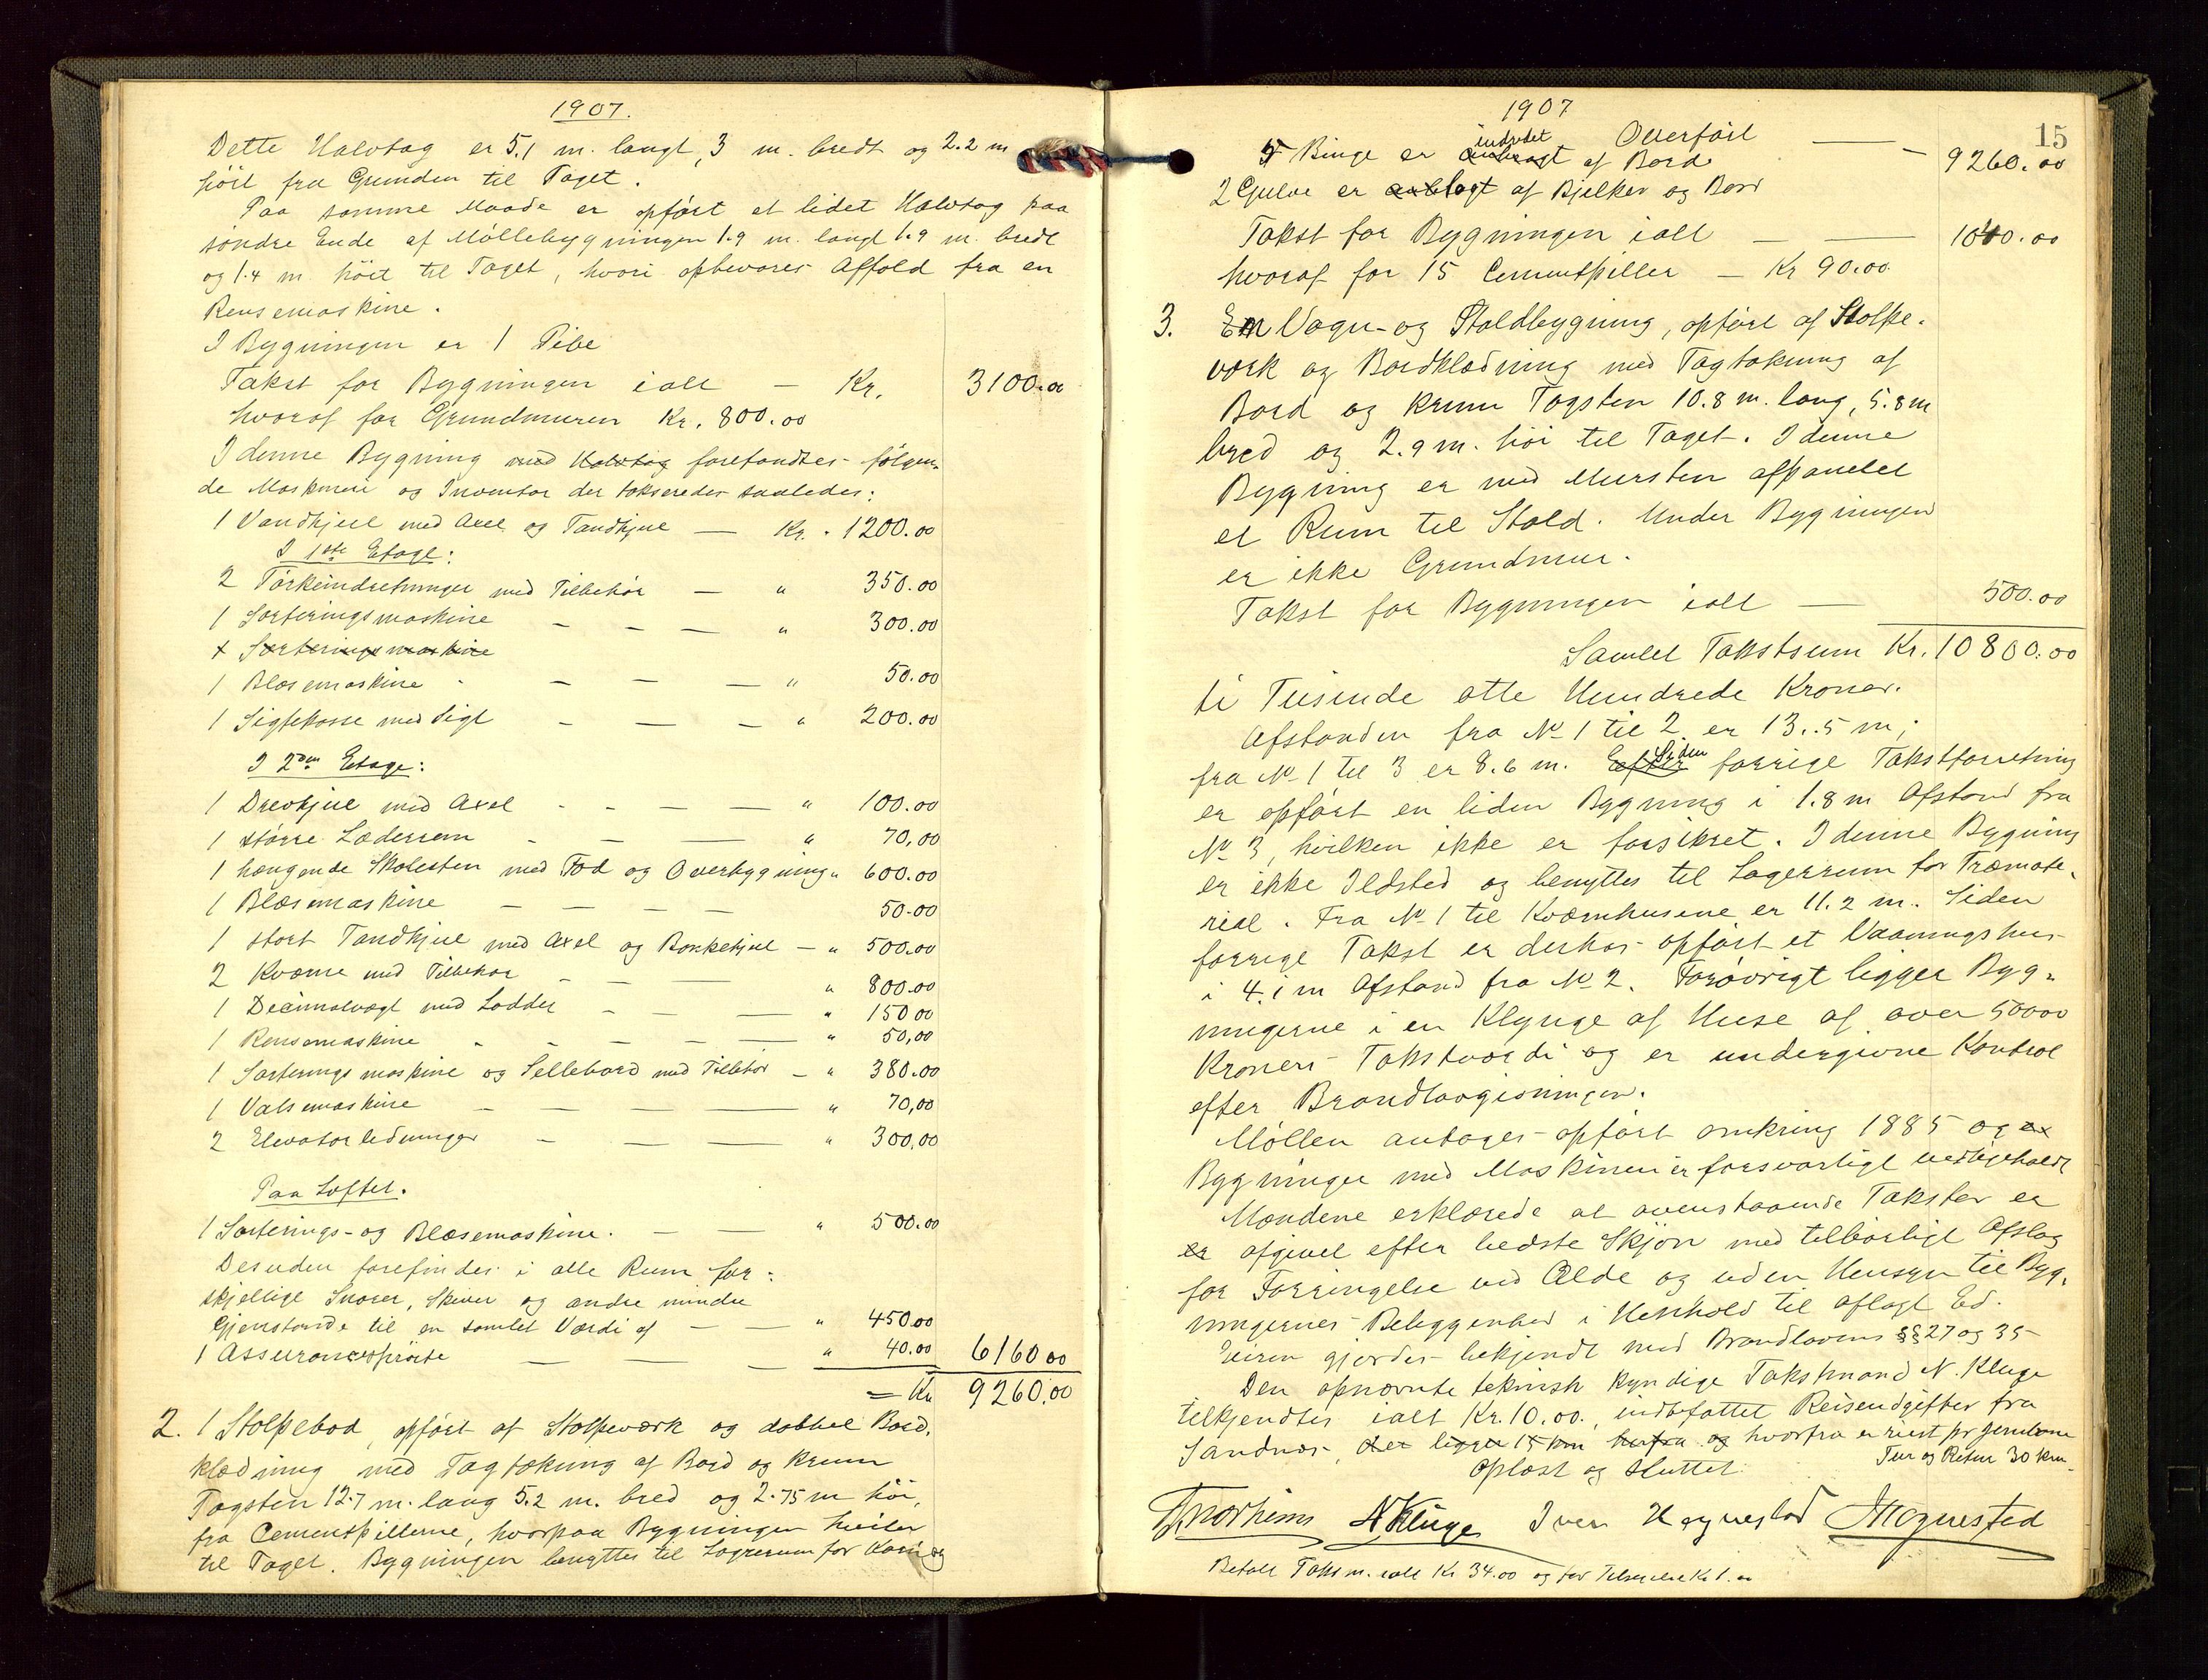 1907.
Dette Halvtag er 5.1 m. langt, 3 m. bredt og 2.2 m
höit fra Grunden til Taget.
Paa samme Maade er opfört et lidet Halvtag paa
söndre Ende af Möllebygningen 1.9 m. langt 1.9 m. bredt
og 1.4 m. höit til Taget, hvori opbevares Affald fra en
Rensemaskine.
I Bygningen er 1 Pibe
Takst for Bygningen ialt — Kr. 3100.00
hvoraf for Grundmuren Kr. 800.00
I denne Bygning med Halvtag forefandtes fölgen-
de Maskineri og Inventar der takseredes saaledes:
1 Vandhjul med Axel og Tandhjul — Kr. 1200.00
I 1ste Etage:
2 Törkeindretninger med Tilbehör — " 350.00
1 Sorteringsmaskine — — — " 300.00
1 Sorteringsmaskine
1 Blæsemaskine — — — " 50.00
1 Sigtekasse med Sigt — — — " 200.00
I 2den Etage:
1 Drevhjul med Axel — — — " 100.00
1 större Læderrem — — — " 70,00
1 hængende Skolesten med Fod og Overbygning " 600.00
1 Blæsemaskine — — — — 50.00
1 stort Tandhjul med Axel og Bankehjul — " 500.00
2 Kværne med Tilbehör — — — " 800.00
1 Decimalvægt med Lodder — — — " 150 00
1 Rensemaskine — — — — " 50,00
1 Sorteringsmaskine og Sellebord med Tilbehör — " 380.00
1 Valsemaskine — — — — " 70,00
2 Elevatorledninger — — — " 300,00
Paa Loftet.
1 Sorterings- og Blæsemaskine. — — " 500.00
Desuden forefindes i alle Rum for-
skjellige Snorer, Skiver og andre mindre
Gjenstande til en samlet Værdi af — — " 450.00
1 Assurancespröite — — — " 40.00 6160 00
= Kr 9260.00
2. 1 Stolpebod, opfört af Stolpeværk og dobbel Bord.
klædning med Tagtækning af Bord og krum
Tagsten 12.7 m. lang 5.2 m. bred og 2.75 m höi,
fra Cementpillerne, hvorpaa Bygningen hviler
til Taget. Bygningen benyttes til Lagerrum for Korn og
1907
15
Overfört — — 9260.00
5 Binge er anbragt indredet af Bord
2 Gulve er anlagt af Bjelker og Bord
Takst for Bygningen ialt — — 1040.00
hvoraf for 15 Cementpiller — Kr 90.00.
3. En Vogn- og Staldbygning, opfört af Stolpe-
værk og Bordklædning med Tagtækning af
Bord og krum Tagsten 10.8 m. lang, 5.8 m
bred og 2.9 m. höi til Taget. I denne
Bygning er med Mursten afpanelet
et Rum til Stald. Under Bygningen
er ikke Grundmur.
Takst for Bygningen ialt — 500.00
Samlet Takstsum Kr. 10800.00
ti Tusinde otte Hundrede Kroner.
Afstanden fra No 1 til 2 er 13.5 m;
fra No 1 til 3 er 8.6 m. Efter Siden forrige Takstforretning
er opfört en liden Bygning i 1.8 m Afstand fra
No 3, hvilken ikke er forsikret. I denne Bygning
er ikke Ildsted og benyttes til Lagerrum for Træmate-
rial. Fra No 1 til Kværnhusene er 11.2 m. Siden
forrige Takst er derhos opfört et Vaaningshus
i 4.1 m Afstand fra No 2. Forövrigt ligger Byg-
ningerne i en Klynge af Huse af over 50000
Kroners Takstværdi og er undergivne Kontrol
efter Brandlovgivningen.
Möllen antages opfört omkring 1885 og er
Bygninger med Maskineri er forsvarligt vedligeholdt
Mændene erklærede at ovenstaaende Takster er
er afgivet efter bedste Skjön med tilbörligt Afslag
for Forringelse ved Ælde og uden Hensyn til Byg-
ningernes Beliggenhed i Henhold til aflagt Ed.
Eieren gjordes bekjendt med Brandlovens §§ 27 og 35
Den opnævnte teknisk kyndige Takstmand N. Kluge
tilkjendtes ialt Kr. 10.00., indbefattet Reiseudgifter fra
Sandnes, der ligger 15 km herfra og hvorfra er reist pr Jernbane
Tur og Retur 30 km.
Oplæst og sluttet.
N Kluge Iver Hognestad
Betalt Taksm. ialt Kr 34.00 og for Tilsigelse Kr 1.00